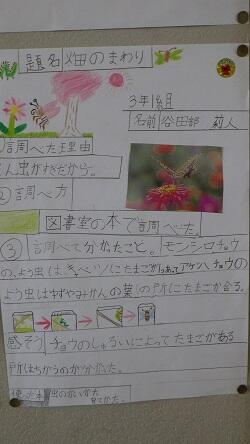 題名 畑のまわり
3年1組
名前 谷田部 莉人
①調べた理由
こん虫がすきだから。
②調べ方
図書室の本で調べた。
③調べて分かたこと。モンシロチョウ
の、よう虫は、キャベツにたまごがあってアゲハチョウの
よう虫はゆずやみかんの葉の所にたまごが合る。
感そう チョウのしゅるいによってたまごがある
所はちがうのが分かった。
使った本